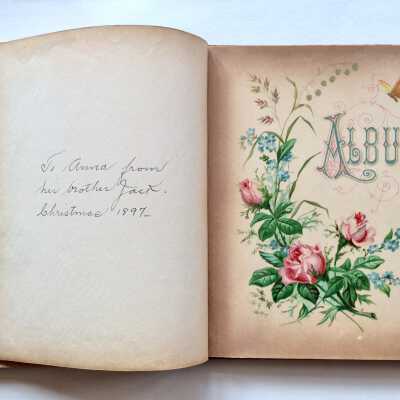 To Anna from
her brother Jack.
Christmas 1897-
ALBU